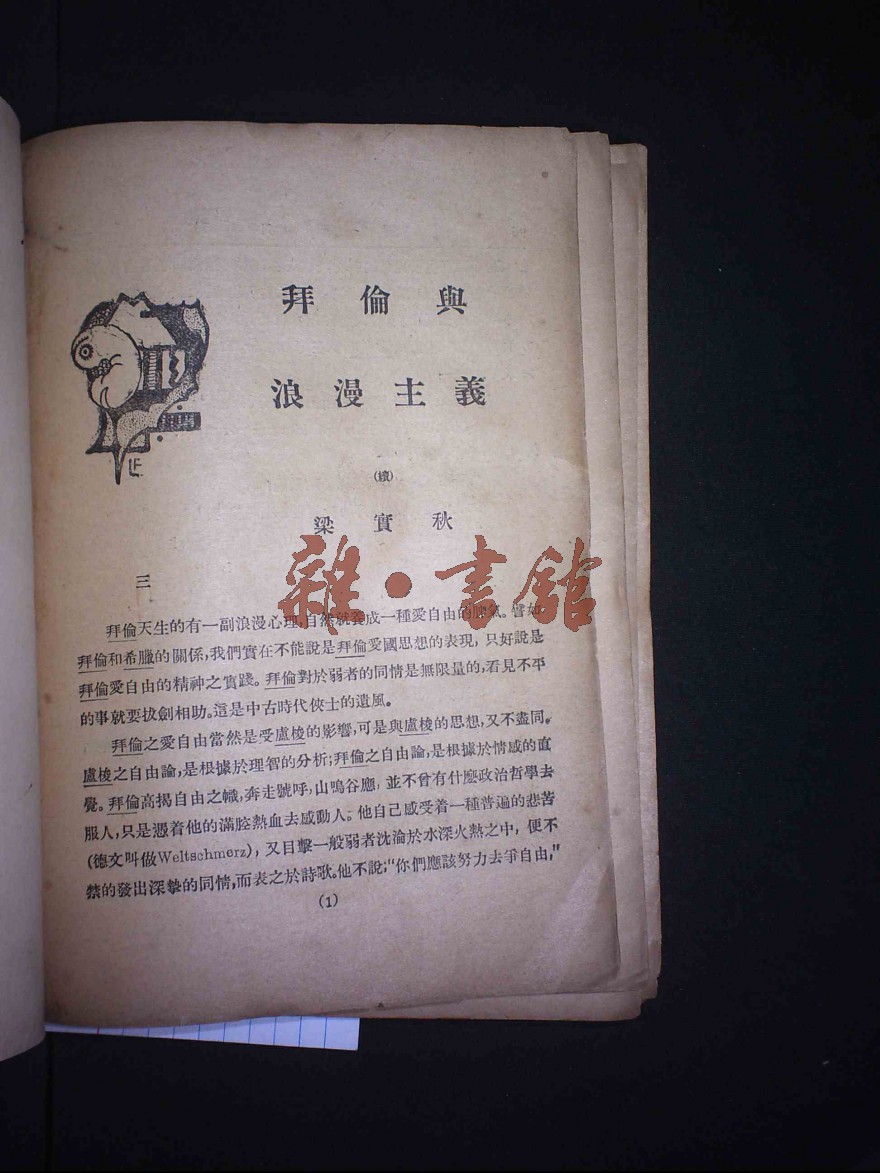 拜倫與
浪漫主義
(續)
梁實秋
雜·書館
三
拜倫天生的有一副浪漫心理,自然就養成一種愛自由的脾氣。譬如
拜倫和希臘的關係,我們實在不能說是拜倫愛國思想的表現,只好說是
拜倫愛自由的精神之實踐。拜倫對於弱者的同情是無限量的,看見不平
的事就要拔劍相助。這是中古時代俠士的遺風。
拜倫之愛自由當然是受盧梭的影響,可是與盧梭的思想,又不盡同。
盧梭之自由論,是根據於理智的分析;拜倫之自由論,是根據於情感的直
覺。拜倫高揭自由之幟,奔走號呼,山鳴谷應,並不曾有什麼政治哲學去
服人,只是憑着他的滿腔熱血去感動人。他自己感受着一種普遍的悲苦
(德文叫做Weltschmerz),又目擊一般弱者沈淪於水深火熱之中,便不
禁的發出深摯的同情,而表之於詩歌。他不說;“你們應該努力去爭自由,”
(1)
LF